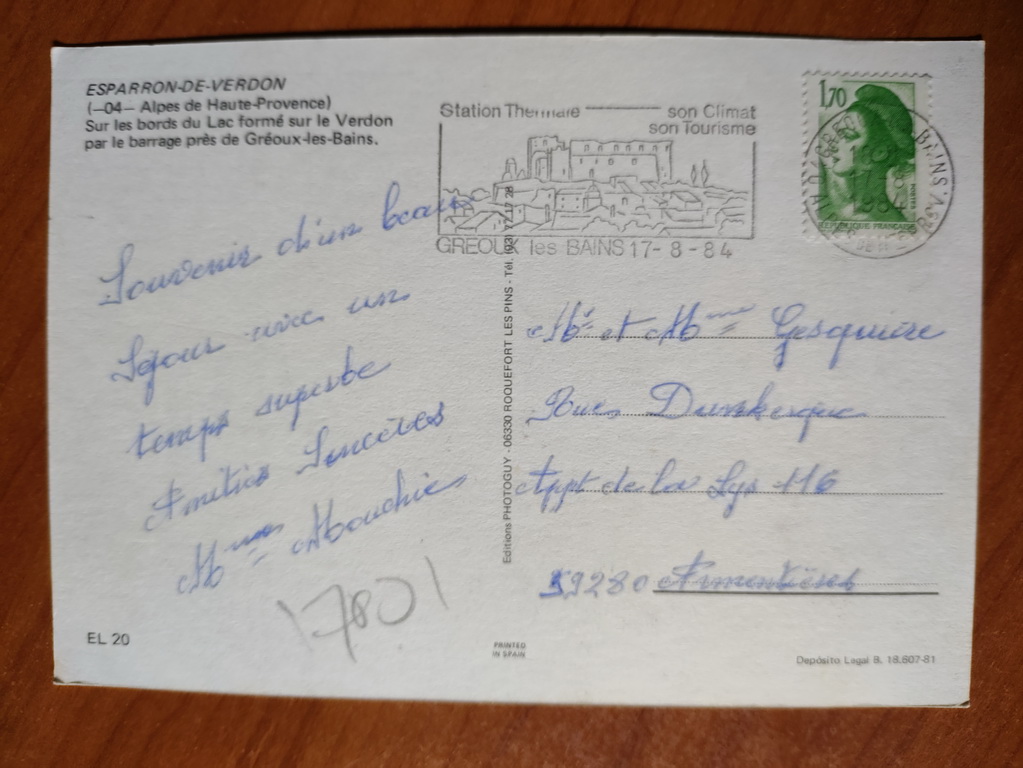 ESPARRON-DE-VERDON
(—04— Alpes de Haute-Provence)
Sur les bords du Lac formé sur le Verdon
par le barrage près de Gréoux-les-Bains.
Station Thermale son Climat
son Tourisme
GREOUX les BAINS 17-8-84
1,70
POSTES
REPUBLIQUE FRANCAISE
BAINS
Souvenir d'un beau
Séjour avec un
temps superbe
Amitiés Sincères
Mme
17801
Editions PHOTOGUY - 06330 ROQUEFORT LES PINS - Tél. (93) 77 17 28
Mr et Mme Gesquière
Rue Dunkerque
Appt de la Lys 116
59280 Armentières
EL 20
PRINTED
IN SPAIN
Depósito Legal B. 18.607-81